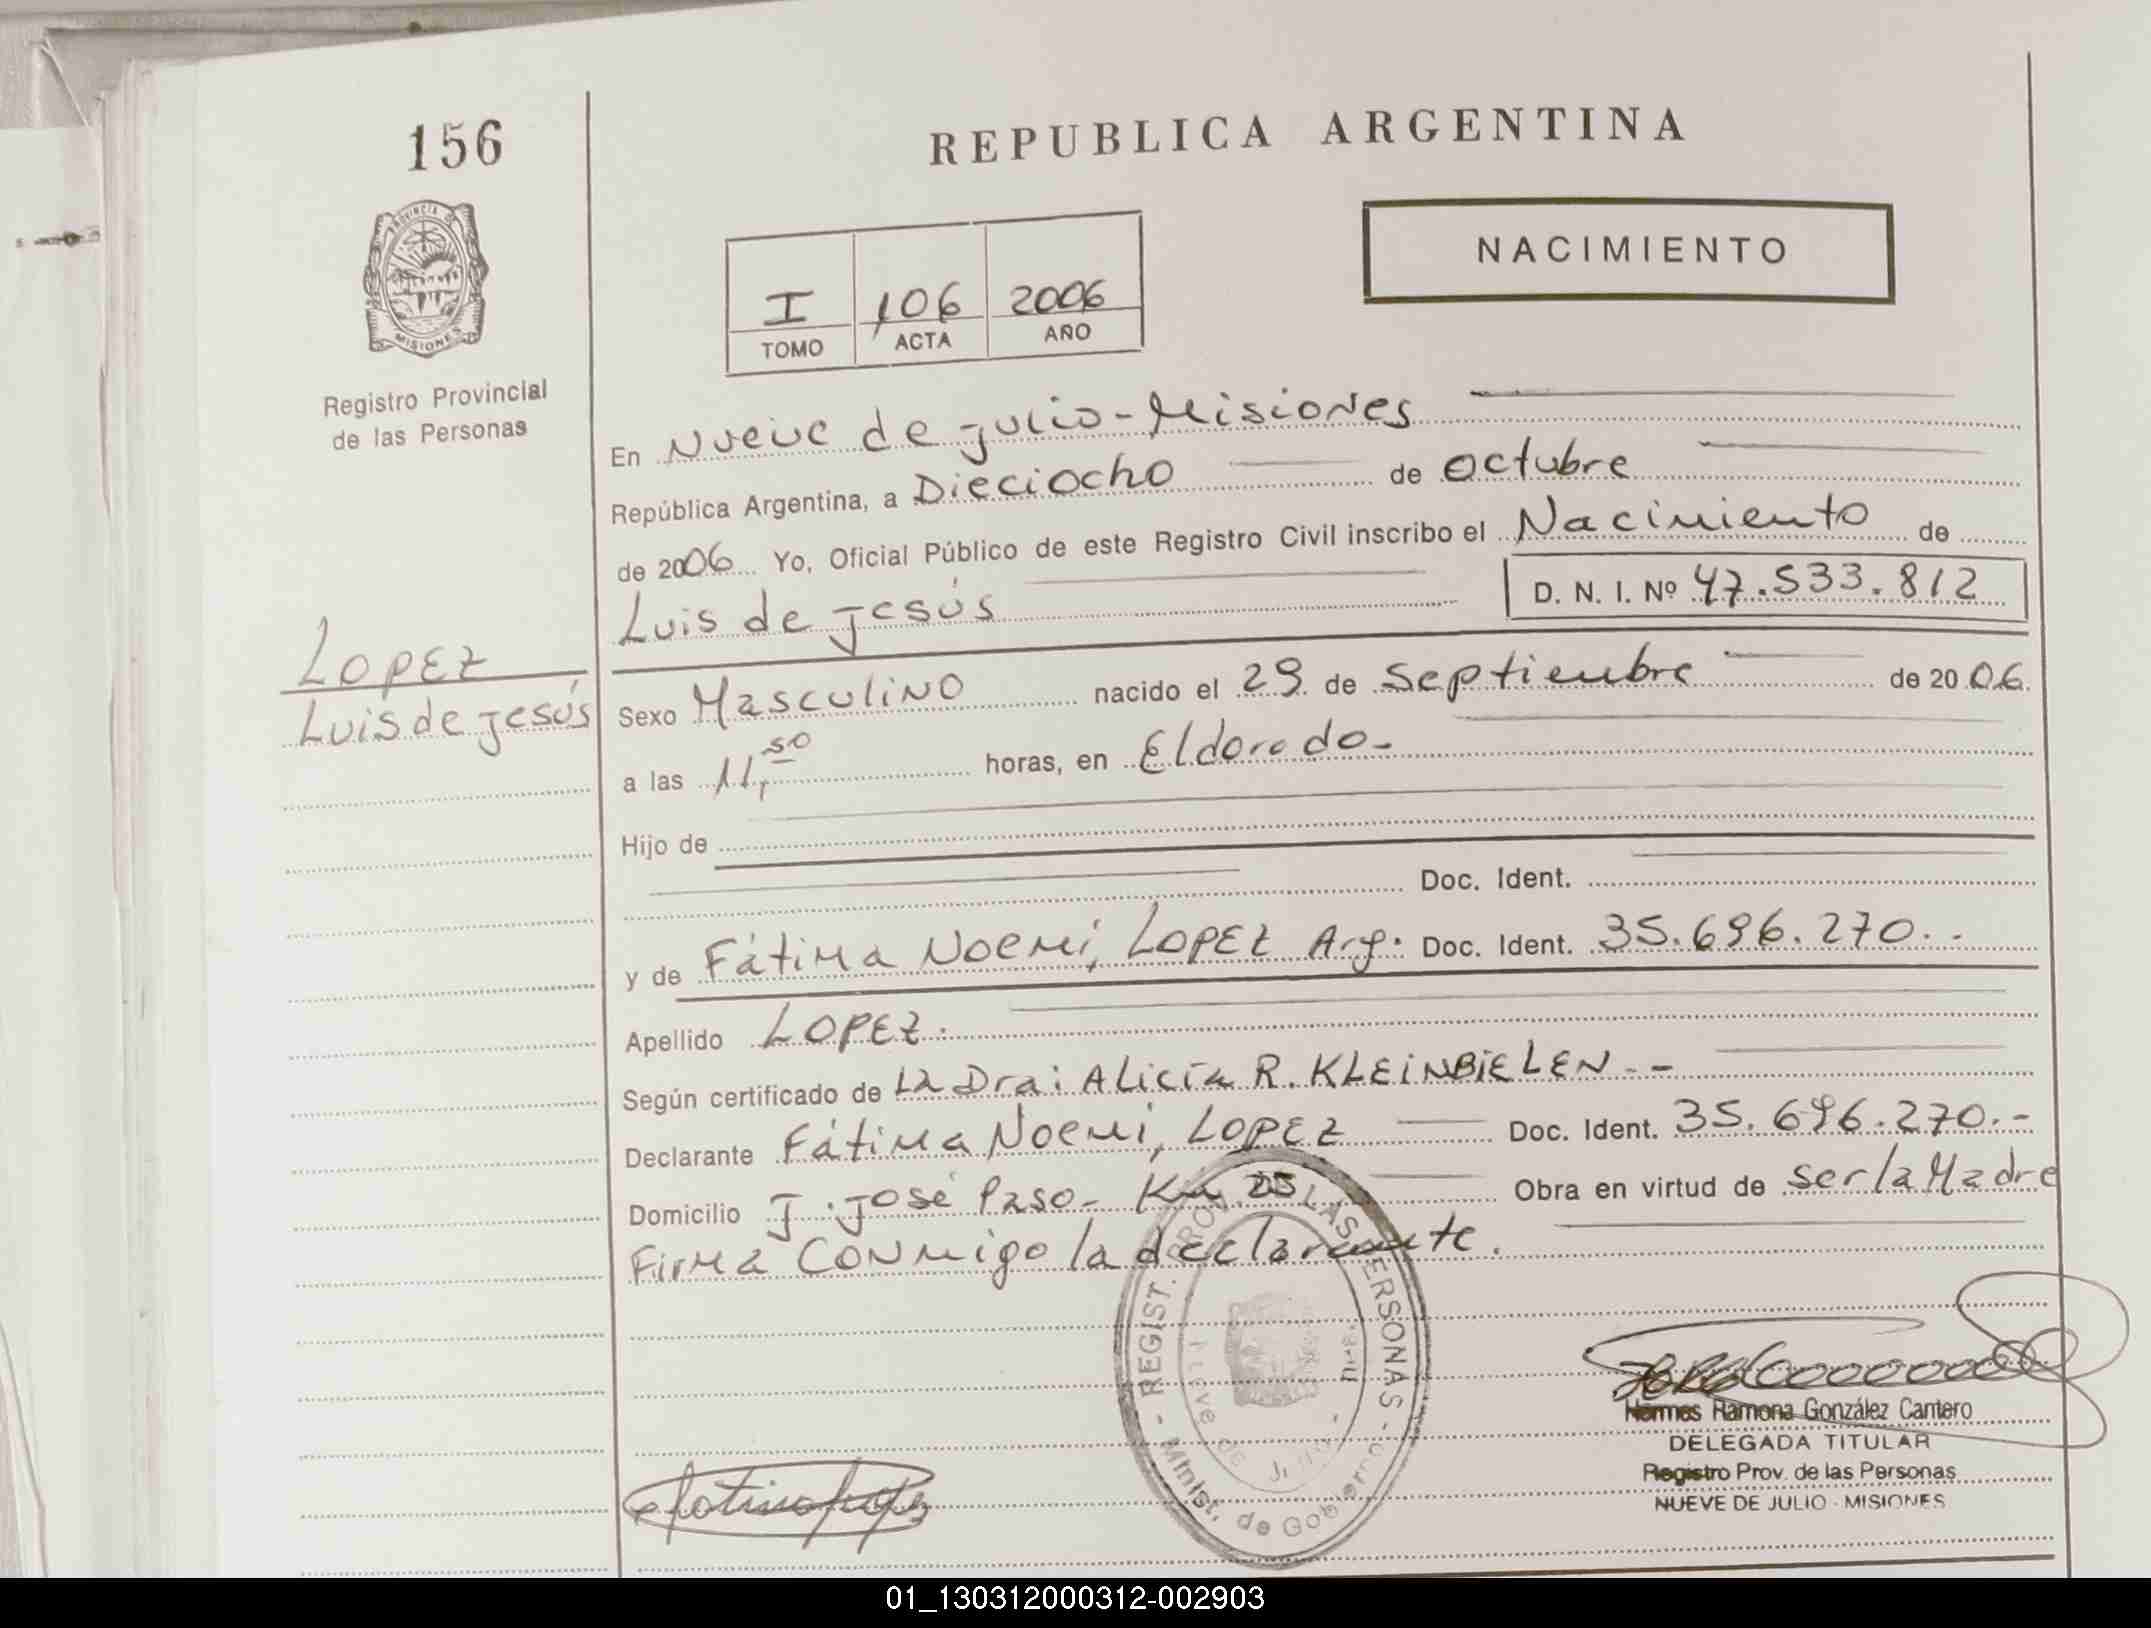 156
REPUBLICA ARGENTINA
PROVINCIA DE
MISIONES
NACIMIENTO
I 106 2006
TOMO ACTA AÑO
Registro Provincial
de las Personas
En Nueve de Julio - Misiones
República Argentina, a Dieciocho de octubre
de 2006 Yo, Oficial Público de este Registro Civil inscribo el Nacimiento de
Luis de Jesús D. N. I. Nº 47.533.812
LOPEZ
Luis de Jesús
Sexo Masculino nacido el 29 de Septiembre de 2006
a las 11,50 horas, en Eldorado-
Hijo de
Doc. Ident.
y de Fátima Noemí, LOPEZ Arg. Doc. Ident. 35.696.270.-
Apellido LOPEZ.
Según certificado de La Dra: Alicia R. KLEINBIELEN.-
Declarante Fátima Noemi, LOPEZ Doc. Ident. 35.696.270.-
Domicilio J. José Paso- Km 25 Obra en virtud de ser la Madre
Firma conmigo la declarante.
REGIST. PROV. DE LAS PERSONAS - Minist. de Gobierno -
Nueve de Julio
Hermes Ramona González Cantero
DELEGADA TITULAR
Registro Prov. de las Personas
NUEVE DE JULIO - MISIONES
01_130312000312-002903